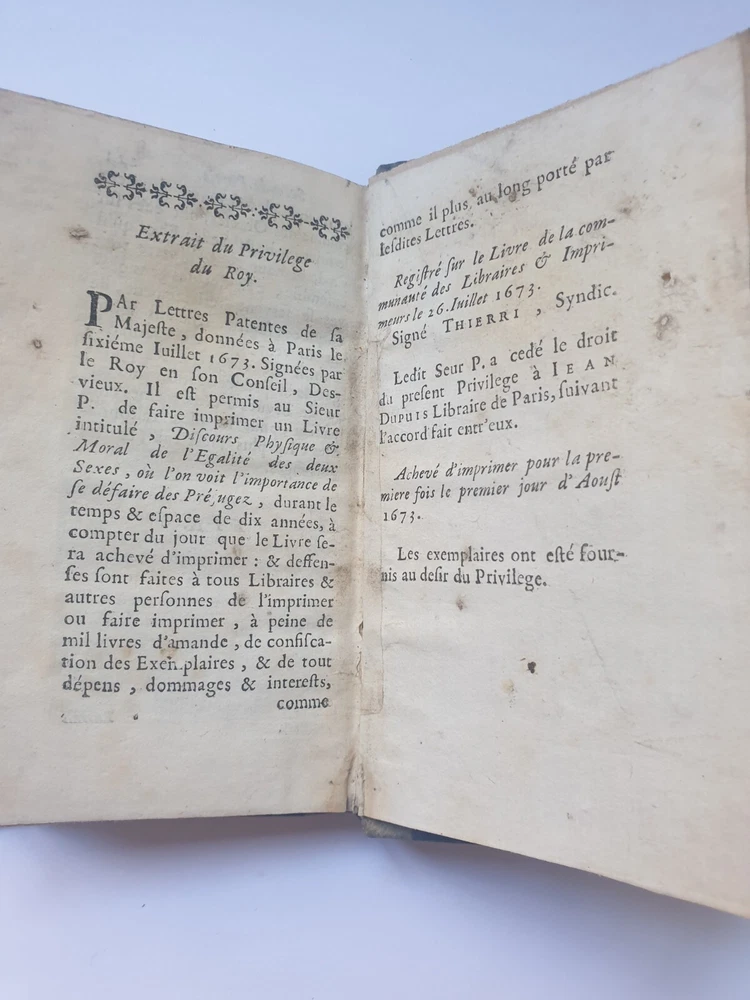 Extrait du Privilege
du Roy.
PAr Lettres Patentes de ſa
Majeſte, données à Paris le
ſixiéme Iuillet 1673. Signées par
le Roy en ſon Conſeil, Deſ-
vieux. Il eſt permis au Sieur
P. de faire imprimer un Livre
intitulé, Diſcours Phyſique &
Moral de l'Egalité des deux
Sexes, où l'on voit l'importance de
ſe défaire des Préjugez, durant le
temps & eſpace de dix années, à
compter du jour que le Livre ſe-
ra achevé d'imprimer : & deffen-
ſes ſont faites à tous Libraires &
autres perſonnes de l'imprimer
ou faire imprimer, à peine de
mil livres d'amande, de confiſca-
tion des Exemplaires, & de tout
dépens, dommages & intereſts,
comme
comme il plus au long porté par
leſdites Lettres.
Regiſtré ſur le Livre de la com-
munauté des Libraires & Impri-
meurs le 26. Iuillet 1673.
Signé THIERRI, Syndic.
Ledit Seur P. a cedé le droit
du preſent Privilege à IEAN
DUPUIS Libraire de Paris, ſuivant
l'accord fait entr'eux.
Achevé d'imprimer pour la pre-
miere fois le premier jour d'Aouſt
1673.
Les exemplaires ont eſté four-
nis au deſir du Privilege.